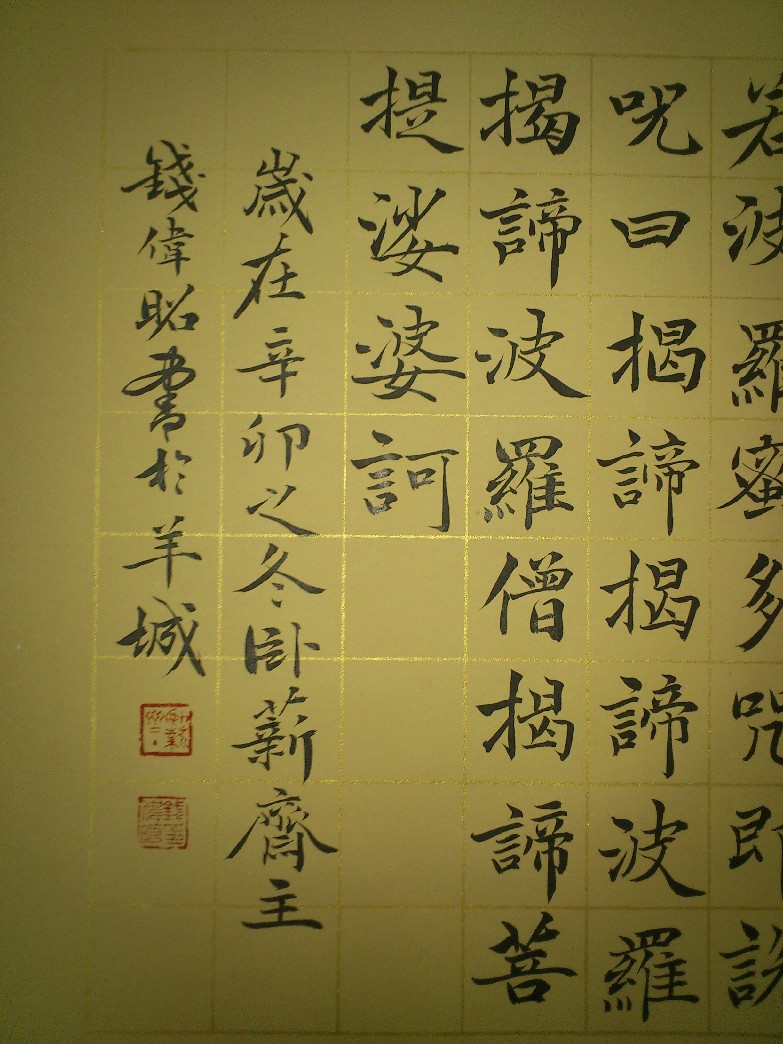 若波羅蜜多呪即說
呪曰揭諦揭諦波羅
揭諦波羅僧揭諦菩
提娑婆訶
歲在辛卯之冬卧薪齋主
錢偉昭書於羊城